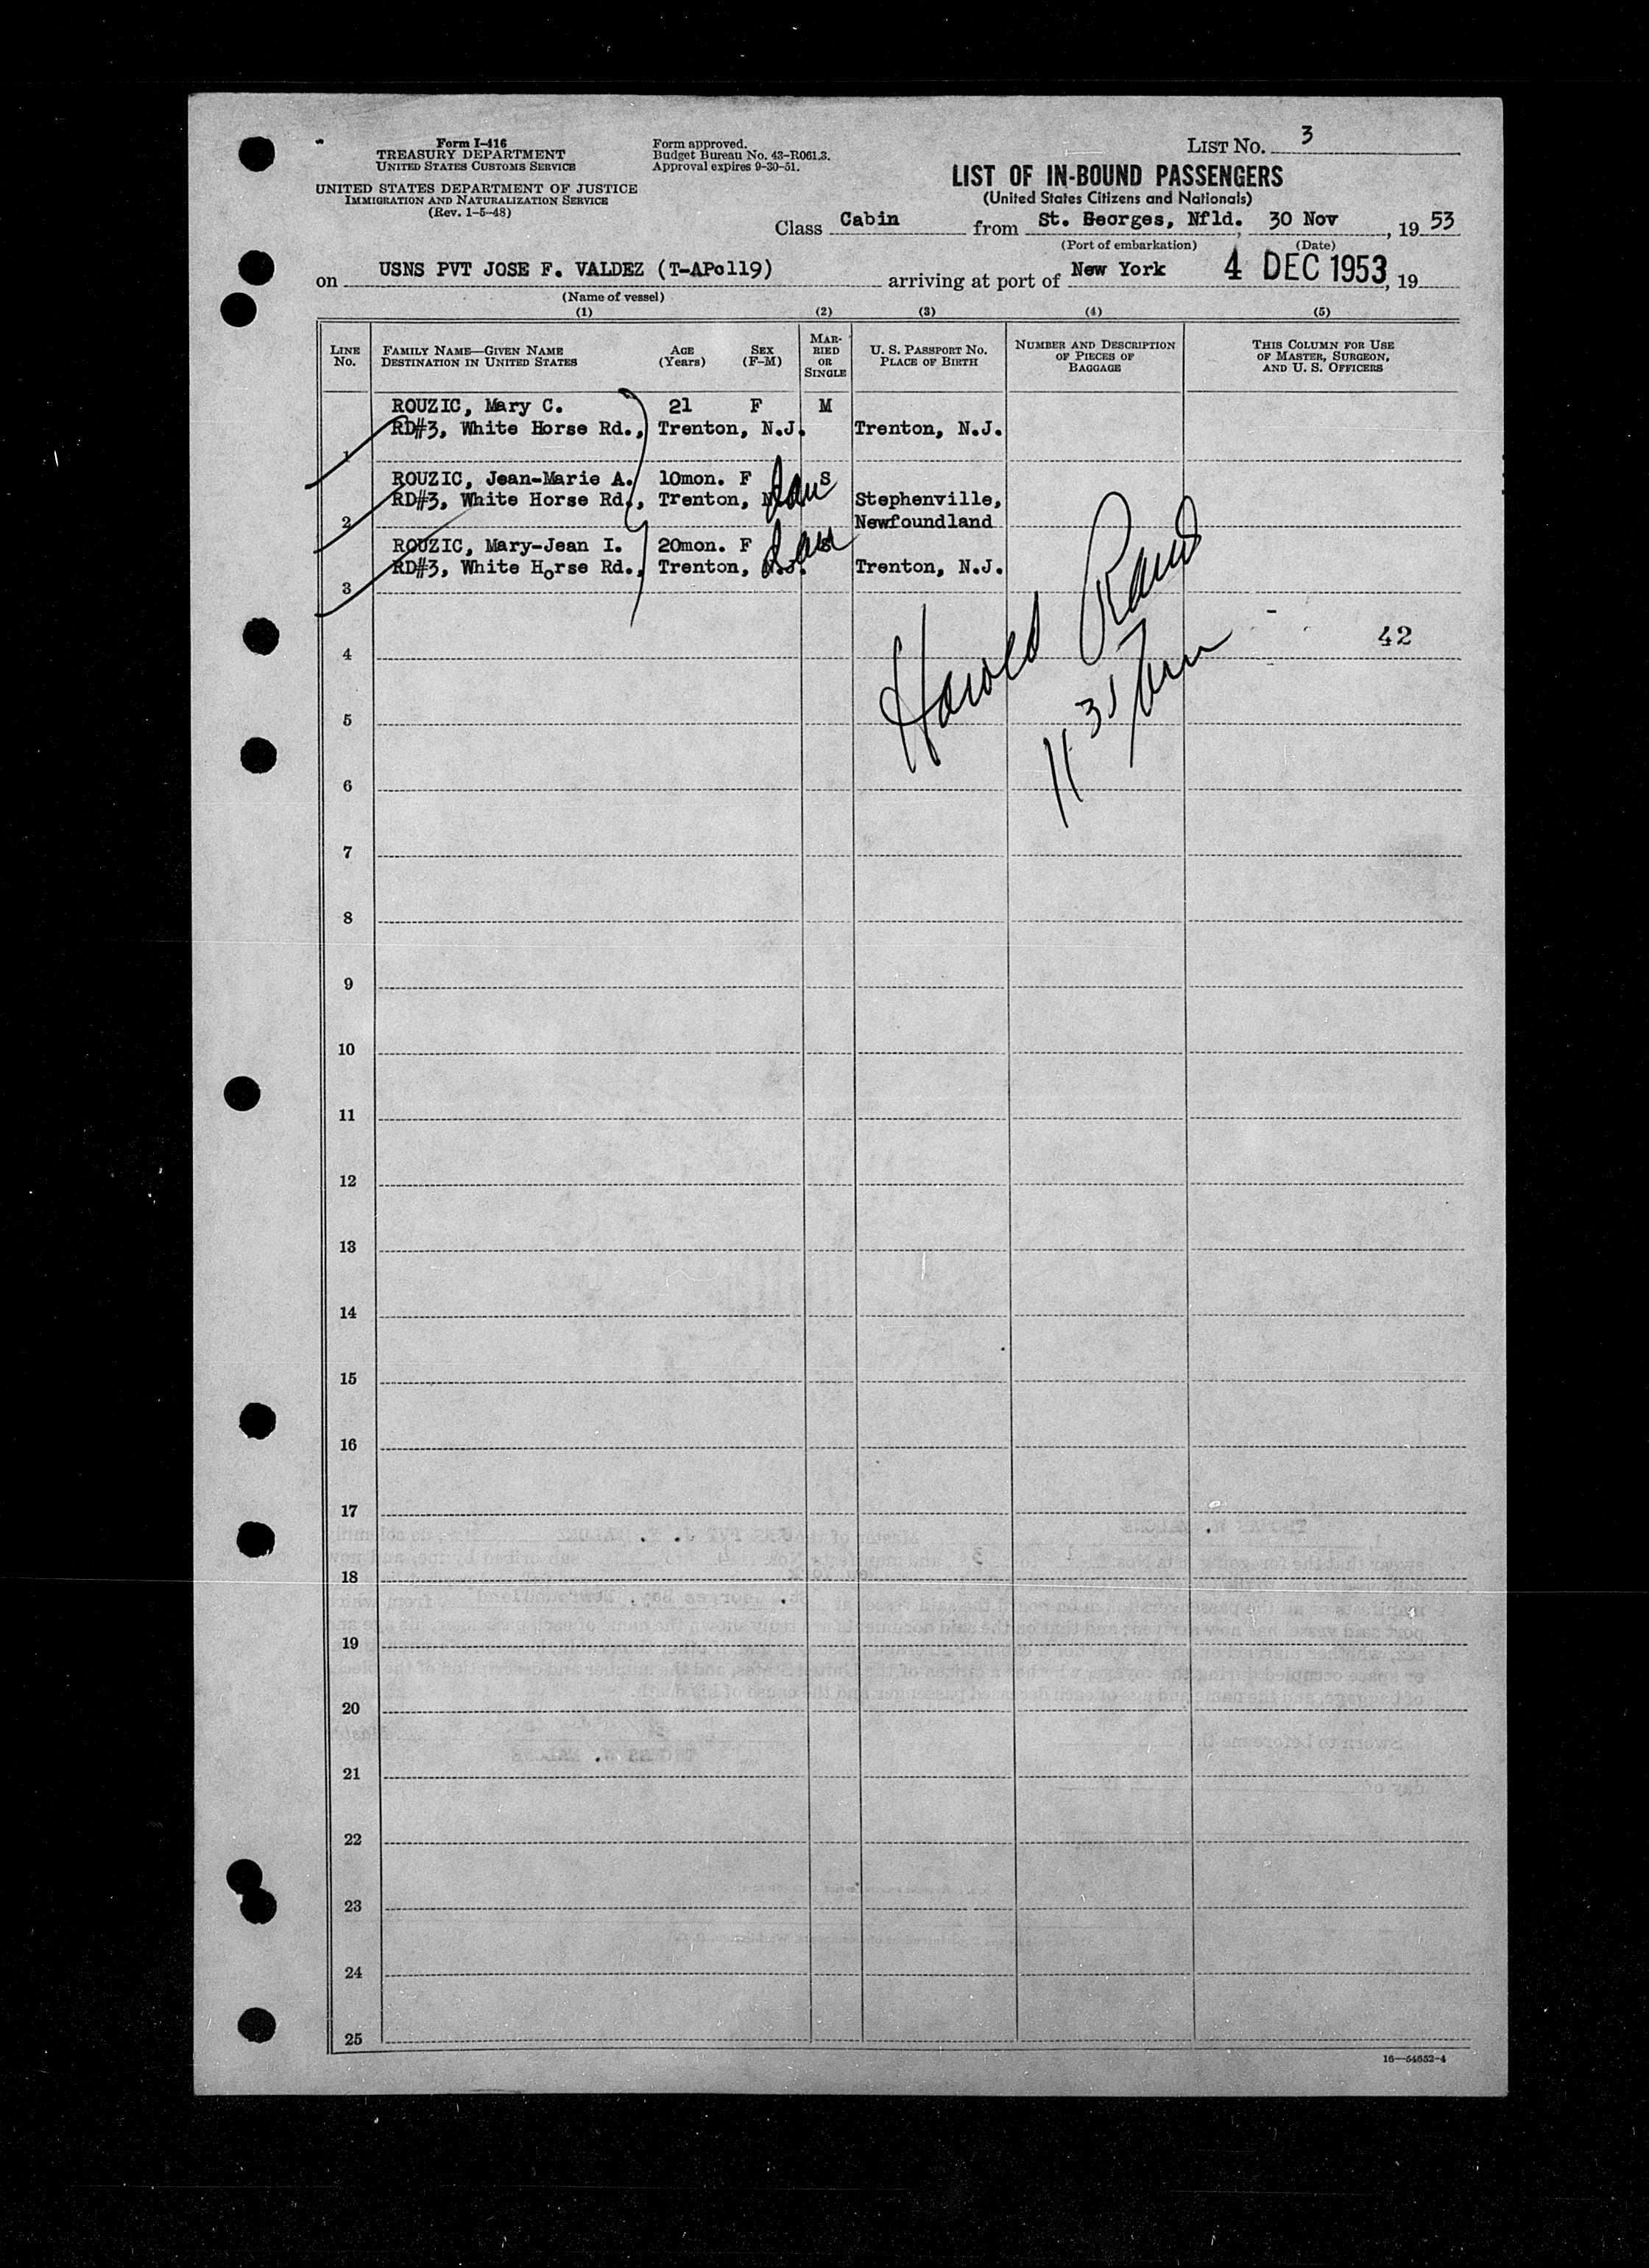 Form I-416
TREASURY DEPARTMENT
UNITED STATES CUSTOMS SERVICE
UNITED STATES DEPARTMENT OF JUSTICE
IMMIGRATION AND NATURALIZATION SERVICE
(Rev. 1-5-48)
Form approved.
Budget Bureau No. 43-R061.3.
Approval expires 9-30-51.
LIST NO. 3
LIST OF IN-BOUND PASSENGERS
(United States Citizens and Nationals)
Class Cabin from St. Georges, Nfld., 30 Nov, 19 53
(Port of embarkation) (Date)
on USNS PVT JOSE F. VALDEZ (T-APo119) arriving at port of New York 4 DEC 1953, 19
(Name of vessel)
(1) (2) (3) (4) (5)
LINE No.
FAMILY NAME—GIVEN NAME
DESTINATION IN UNITED STATES
AGE (Years)
SEX (F-M)
MARRIED OR SINGLE
U. S. PASSPORT NO.
PLACE OF BIRTH
NUMBER AND DESCRIPTION OF PIECES OF BAGGAGE
THIS COLUMN FOR USE OF MASTER, SURGEON, AND U. S. OFFICERS
ROUZIC, Mary C. 21 F M
RD#3, White Horse Rd., Trenton, N.J. Trenton, N.J.
1
ROUZIC, Jean-Marie A. 10mon. F S
RD#3, White Horse Rd., Trenton, Stephenville,
2 Newfoundland
ROUZIC, Mary-Jean I. 20mon. F S
RD#3, White Horse Rd., Trenton, N.J. Trenton, N.J.
3
Harold Rand
42
4
5
6
7
8
9
10
11
12
13
14
15
16
17
18
19
20
21
22
23
24
25
16—54652-4